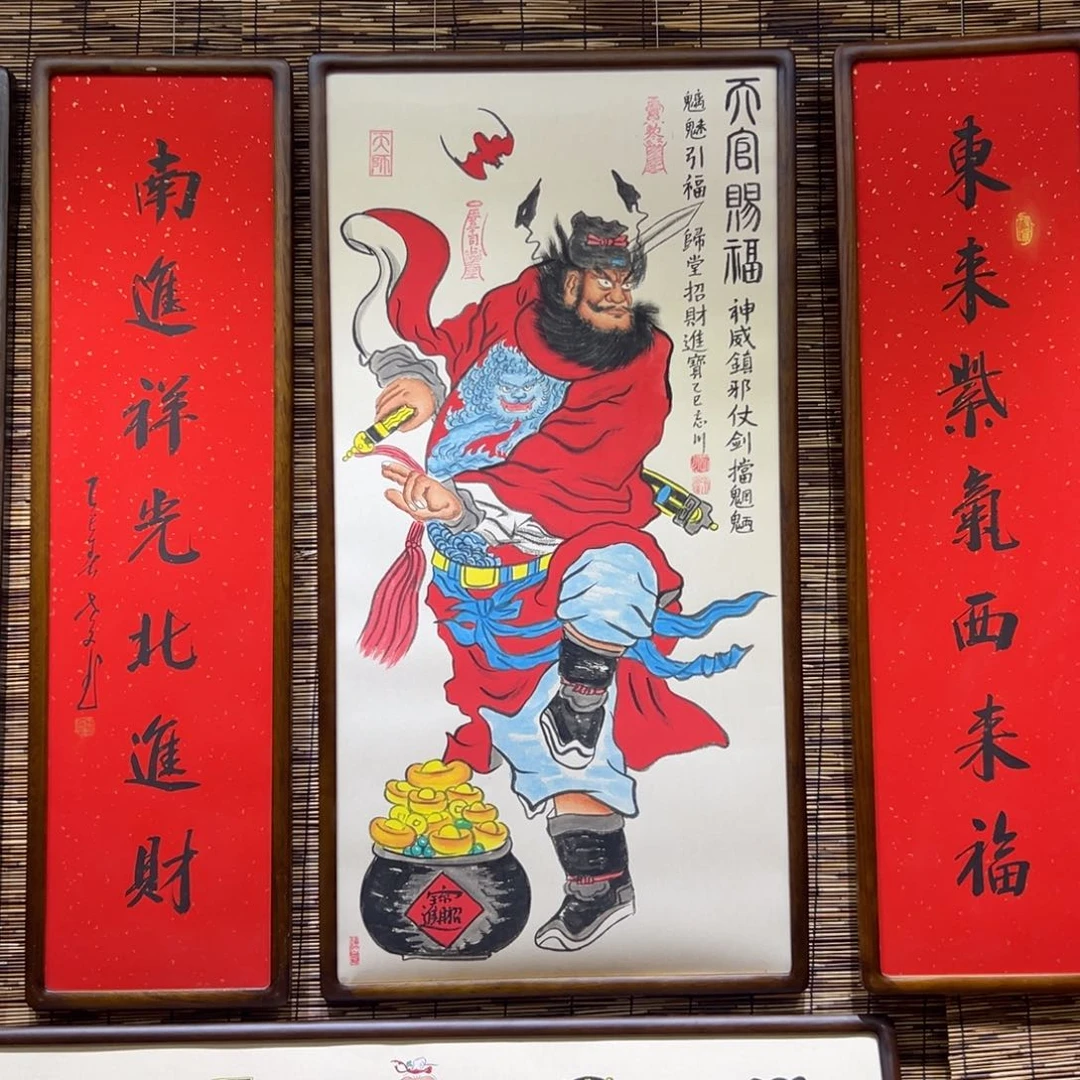 東来紫氣西来福
天官賜福
神威鎮邪仗剑擋魍魎
魑魅引福歸堂招財進寶乙巳志川
天師
招財進寶
南進祥光北進財